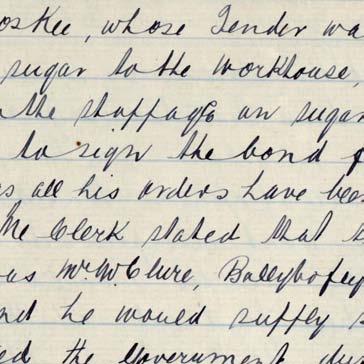 oskee, whose Tender wa
sugar to the workhouse,
the stoppage on sugar
to sign the bond f
as all his orders have bee
The Clerk stated that
was Mr. McClure, Ballybofey
and he would supply s
the Government du